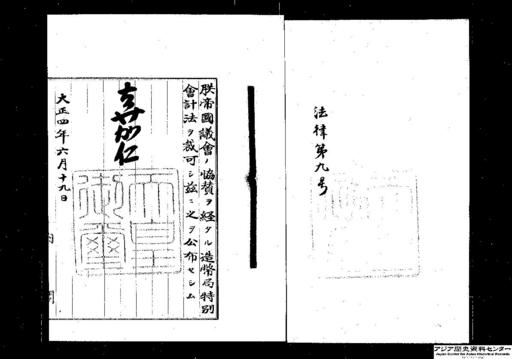 法律第九号
朕帝國議會ノ協賛ヲ経タル造幣局特別
會計法ヲ裁可シ茲ニ之ヲ公布セシム
嘉仁
天皇御璽
大正四年六月十九日
内閣
アジア歴史資料センター
Japan Center for Asian Historical Records